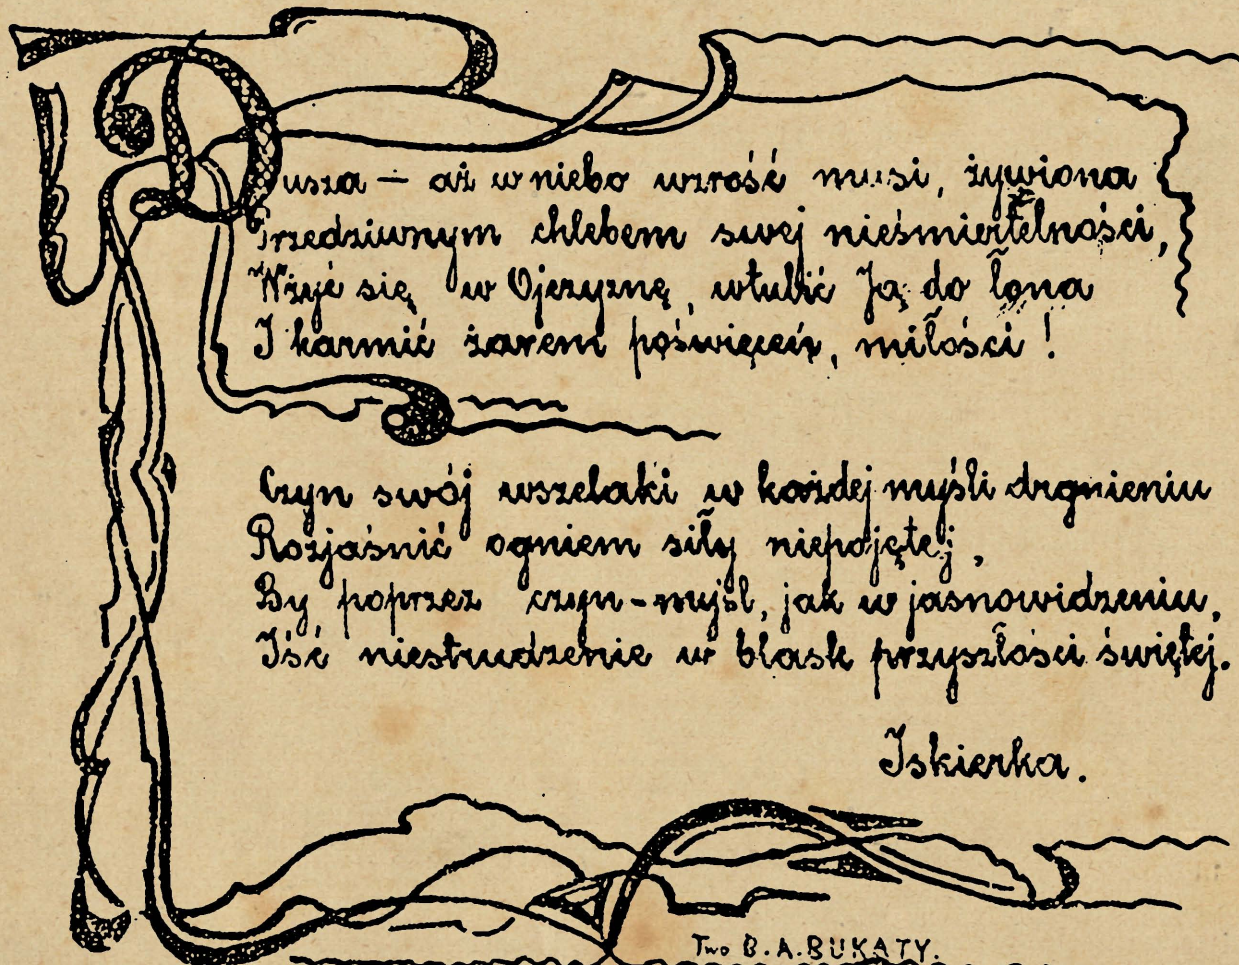 Dusza – aż w niebo wzrość musi, żywiona
Przedziwnym chlebem swej nieśmiertelności,
Wżyć się w Ojczyznę, wtulić Ją do łona
I karmić żarem poświęceń, miłości!
Czyn swój wszelaki w każdej myśli drgnieniu
Rozjaśnić ogniem siły niepojętej,
By poprzez czyn-myśl, jak w jasnowidzeniu,
Iść niestrudzenie w blask przyszłości świętej.
Iskierka.
Two B.A.BUKATY.